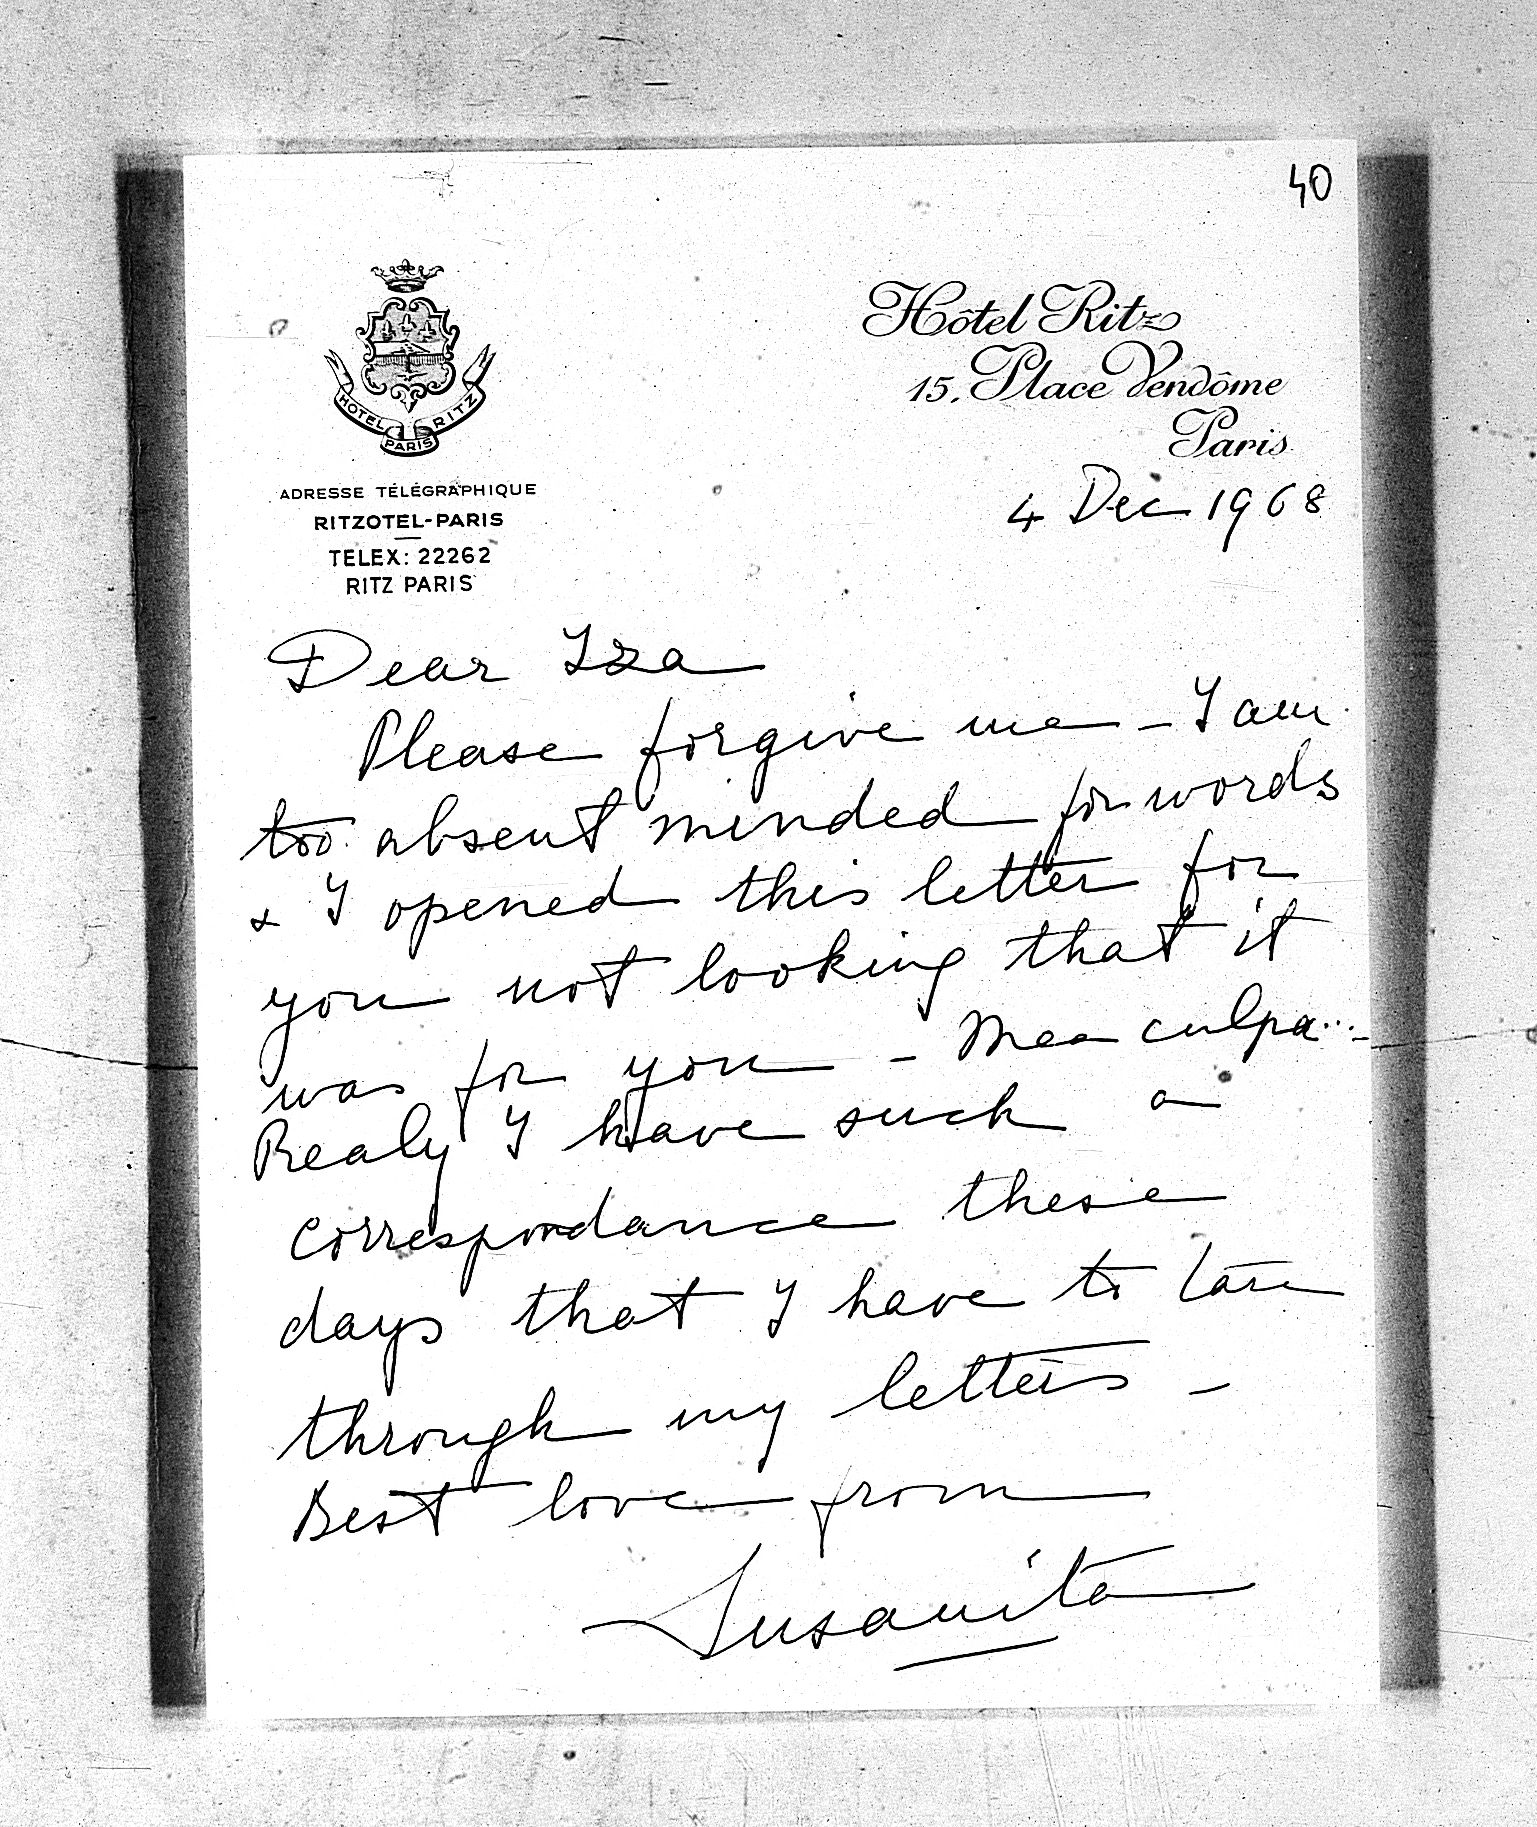 40
HOTEL RITZ
PARIS
Hôtel Ritz
15, Place Vendôme
Paris
ADRESSE TÉLÉGRAPHIQUE
RITZOTEL-PARIS
TELEX: 22262
RITZ PARIS
4 Dec 1968
Dear Iza
Please forgive me - I am
too absent minded for words
& I opened this letter for
you not looking that it
was for you - Mea culpa...-
Realy I have such a
correspondance these
days that I have to
through my letters -
Best love from
Susanita